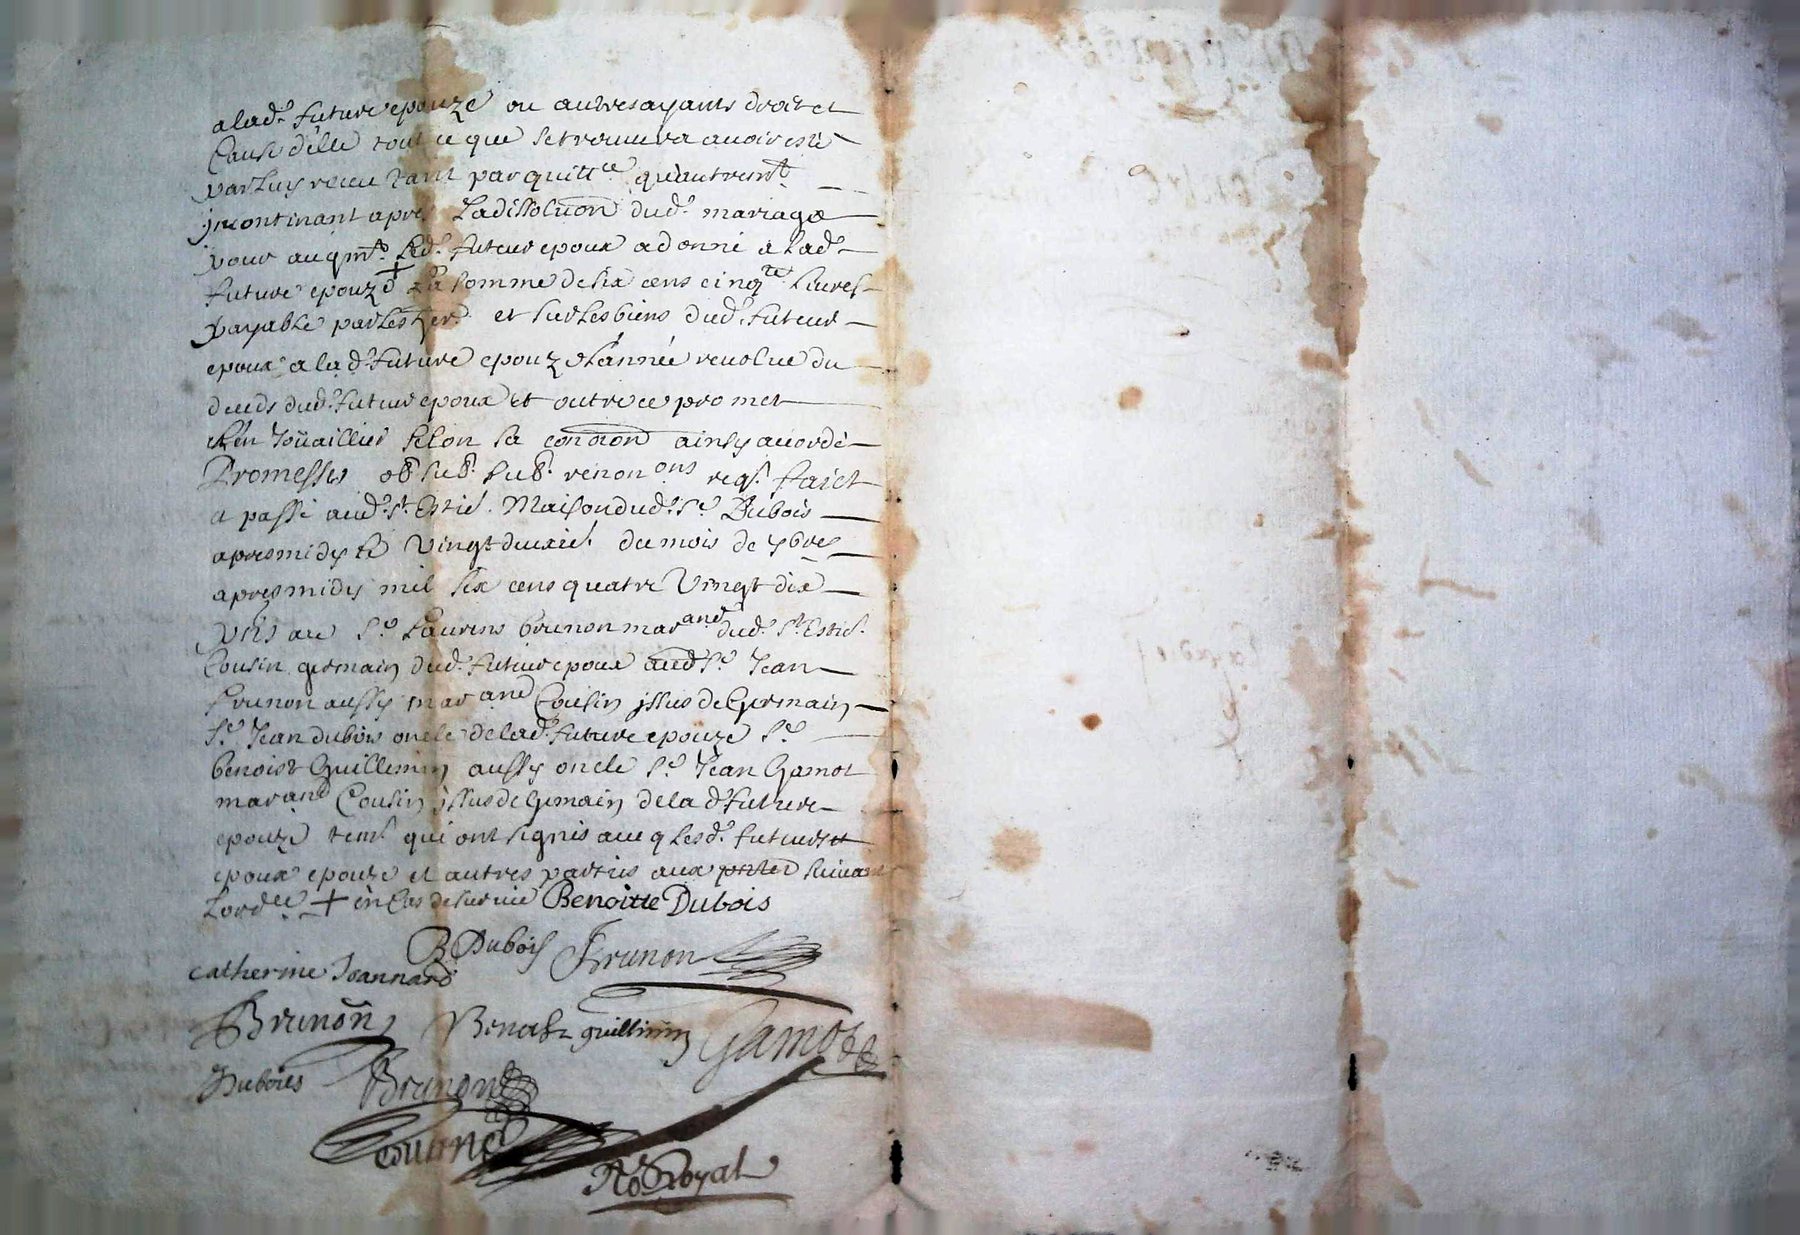 a lad.e future epouze ou autres ayants droict et
Cause d'elle tout ce que se trouvera avoir esté
par luy receu tant par quitt.ce qu'autremt.
jncontinant apres La dissolution dud.t mariage
pour augmt. Led.t futeur epoux a donné a lad.e
future epouze + La somme de six cens cinq.te Livres
payable par les her. et sur les biens dud.t futeur
epoux a la d.e future epouze l'année revolue du
deceds dud.t futeur epoux et outre ce promet
selon sa con.on ainsy accordé
Promesses ob. sub. renon.ons req.s faict
a passé aud.t St. Estie. Maison dud.t Sr. Dubois
apresmidy le Vingt deuxie. du mois de
apresmidy mil six cens quatre Vingt dix
au Sr. Laurens brunon marand dud.t St. Estie.
Cousin germain dud.t futeur epoux aud.t Sr. Jean
brunon aussy marand Cousin jssus de Germain
Sr. Jean dubois oncle de lad.e future epouze Sr.
benoist Guillemin aussy oncle Sr. Jean Gamot
marand Cousin jssus de Germain de la d.e future
epouze tem. qui ont signés avec q Lesd. futeurs
epoux epouze et autres parties aux suivant
Lord.ce + en Cas de survie Benoitte Dubois
B Dubois Brunon
catherine Jeannard
Brunon Benoist guillimin Gamot
Duboies Brunon
No.re Royal